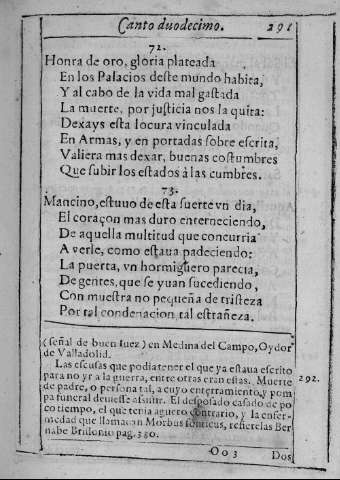 Canto duodecimo. 291
72.
Honra de oro, gloria plateada
En los Palacios deste mundo habita,
Y al cabo de la vida mal gastada
La muerte, por justicia nos la quita:
Dexays esta locura vinculada
En Armas, y en portadas sobre escrita,
Valiera mas dexar, buenas costumbres
Que subir los estados à las cumbres.
73.
Mancino, estuuo de esta suerte vn dia,
El coraçon mas duro enterneciendo,
De aquella multitud que concurria
A verle, como estaua padeciendo:
La puerta, vn hormiguero parecia,
De gentes, que se yuan sucediendo,
Con muestra no pequeña de tristeza
Por tal condenacion tal estrañeza.
(señal de buen Iuez) en Medina del Campo, Oydor
de Valladolid.
Las escusas que podia tener el que ya estaua escrito
para no yr a la guerra, entre otras eran estas. Muerte 292.
de padre, o persona tal, a cuyo enterramiento, y pom
pa funeral deuiesse assistir. El desposado casado de po
co tiempo, el que tenia aguero contrario, y la enfer-
medad que llamauan Morbus sonticus, refierelas Ber
nabe Brissonio pag. 380.
Oo 3 Dos